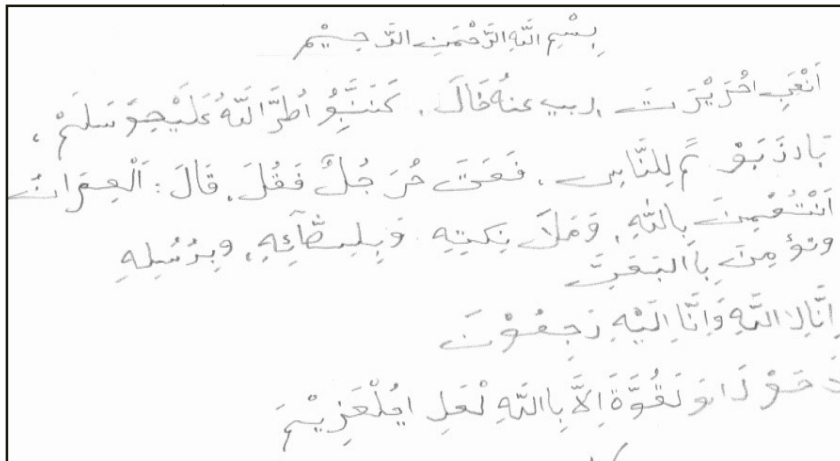 بِسْمِ اللَّهِ الرَّحْمَنِ الرَّحِيْمِ
اَنْعَبِ احُرَيْرَتَ رببي عنهُ قَالَ، كَنَنَّبِيُّو اُطرَّ اللَّهُ عَلَيْحِوَ سَلَمْ،
بَادذَبَوْ مً لِلنَّاسِ، فَعَتَ حُرَ جُلٌ فَقُلَ، قَالَ: اَلْعِمَرَانُ
اَنْتُعْمِنَ بِاللَّهِ، وَمَلَا نِكتِهِ وَبِلِقَآئِهِ، وبِرُسُلِهِ
وتؤمِنَ بِاَلبَعَتِ
اِنَّالِا اللَّهِ وَاِنَّا اِلَيْهِ رَجِعُوْنَ
حَوْ لَا وَ نَقُوَّةَ اِلاَّ بِااللَّهِ لْعَلِ ايُلْعَزِيْمَ